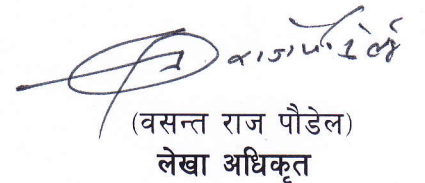 (वसन्त राज पौडेल)
लेखा अधिकृत